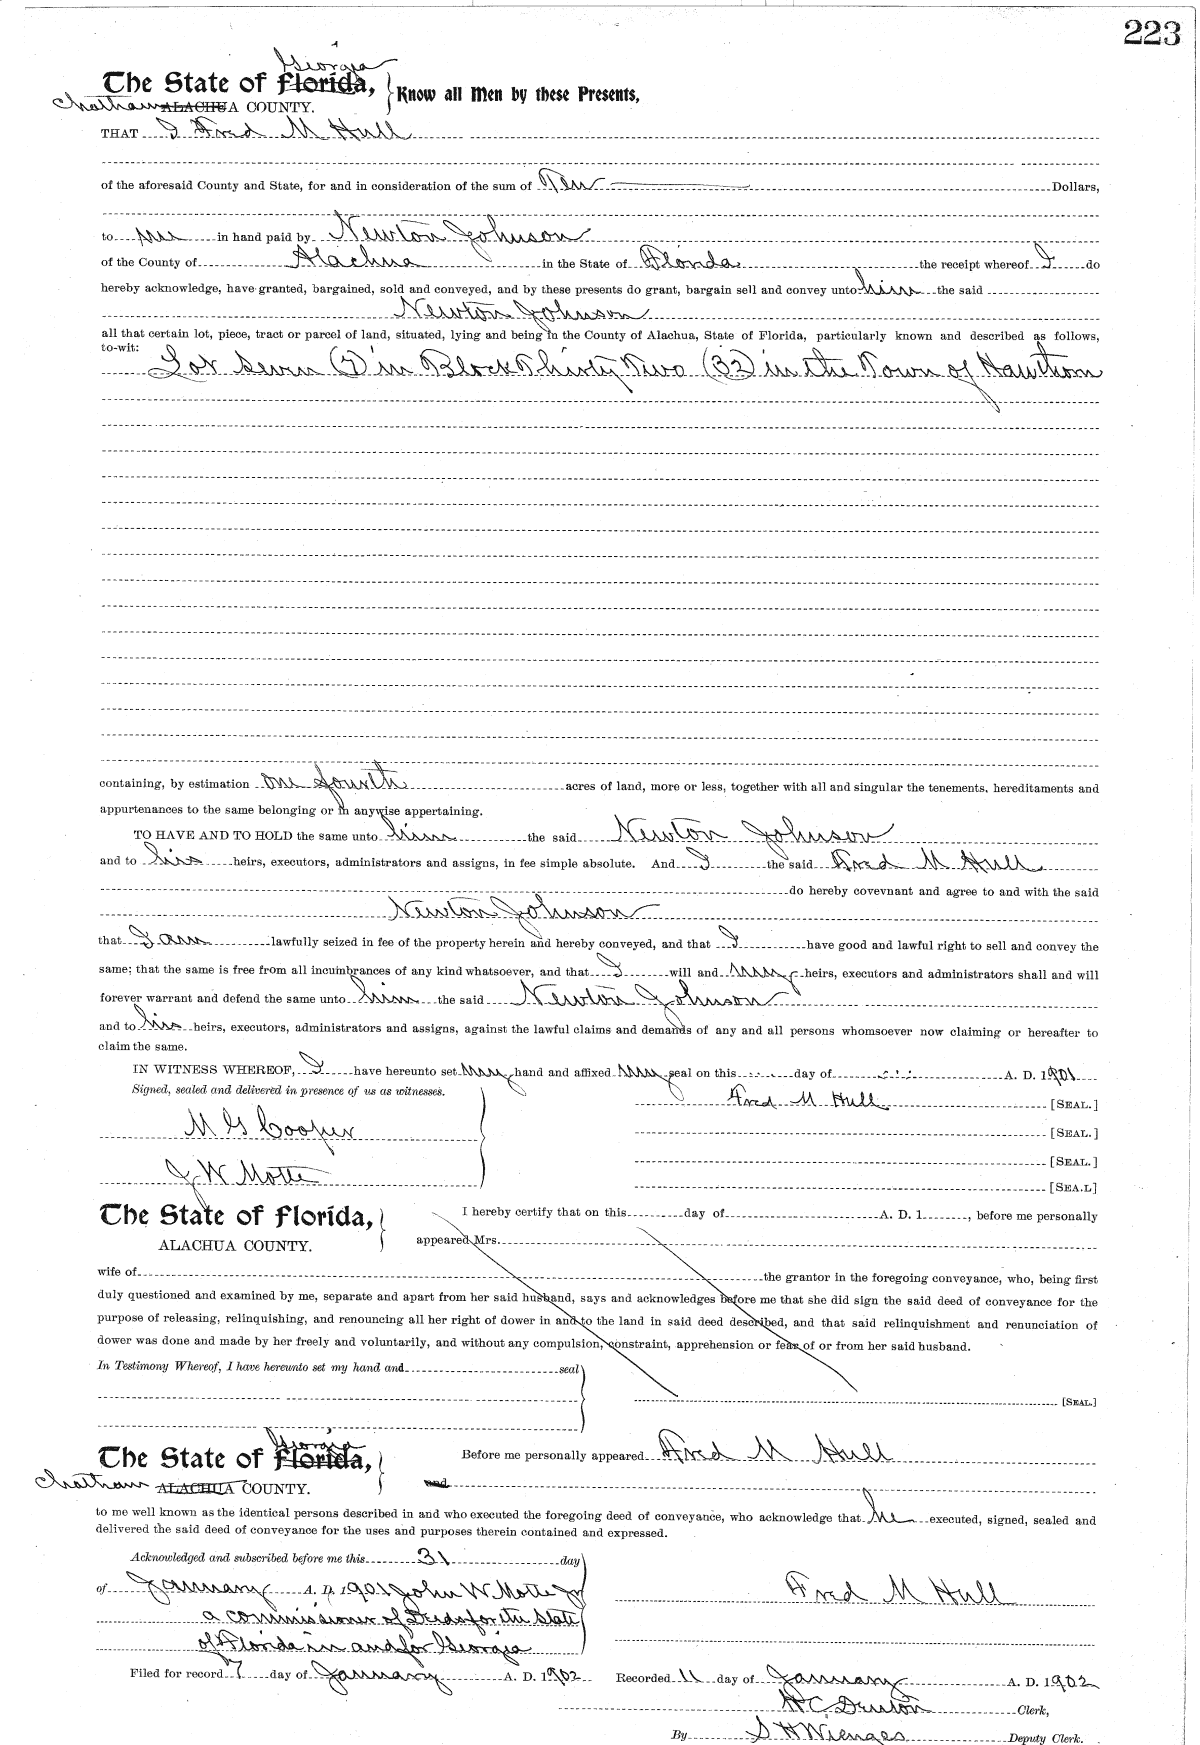 223
Georgia
The State of Florida, Know all Men by these Presents,
Chatham ALACHUA COUNTY.
THAT I Fred M Hull
of the aforesaid County and State, for and in consideration of the sum of Ten Dollars,
to me in hand paid by Newton Johnson
of the County of Alachua in the State of Florida the receipt whereof I do
hereby acknowledge, have granted, bargained, sold and conveyed, and by these presents do grant, bargain sell and convey unto him the said
Newton Johnson
all that certain lot, piece, tract or parcel of land, situated, lying and being in the County of Alachua, State of Florida, particularly known and described as follows,
to-wit:
Lot Seven (7) in Block Thirty Two (32) in the Town of Hawthorn
containing, by estimation one fourth acres of land, more or less, together with all and singular the tenements, hereditaments and
appurtenances to the same belonging or in anywise appertaining.
TO HAVE AND TO HOLD the same unto him the said Newton Johnson
and to his heirs, executors, administrators and assigns, in fee simple absolute. And I the said Fred M Hull
do hereby covevnant and agree to and with the said
Newton Johnson
that I am lawfully seized in fee of the property herein and hereby conveyed, and that I have good and lawful right to sell and convey the
same; that the same is free from all incumbrances of any kind whatsoever, and that I will and my heirs, executors and administrators shall and will
forever warrant and defend the same unto him the said Newton Johnson
and to his heirs, executors, administrators and assigns, against the lawful claims and demands of any and all persons whomsoever now claiming or hereafter to
claim the same.
IN WITNESS WHEREOF, I have hereunto set my hand and affixed my seal on this day of A. D. 1901
Signed, sealed and delivered in presence of us as witnesses.
Fred M Hull [SEAL.]
M G Cooper [SEAL.]
[SEAL.]
J W Motte [SEA.L]
The State of Florida, I hereby certify that on this day of A. D. 1 , before me personally
ALACHUA COUNTY. appeared Mrs.
wife of the grantor in the foregoing conveyance, who, being first
duly questioned and examined by me, separate and apart from her said husband, says and acknowledges before me that she did sign the said deed of conveyance for the
purpose of releasing, relinquishing, and renouncing all her right of dower in and to the land in said deed described, and that said relinquishment and renunciation of
dower was done and made by her freely and voluntarily, and without any compulsion, constraint, apprehension or fear of or from her said husband.
In Testimony Whereof, I have hereunto set my hand and seal
[SEAL.]
Georgia
The State of Florida, Before me personally appeared Fred M Hull
Chatham ALACHUA COUNTY. and
to me well known as the identical persons described in and who executed the foregoing deed of conveyance, who acknowledge that he executed, signed, sealed and
delivered the said deed of conveyance for the uses and purposes therein contained and expressed.
Acknowledged and subscribed before me this 31 day
of January A. D. 1901 John W Motte Jr Fred M Hull
a commissioner of Deeds for the State
of Florida in and for Georgia
Filed for record 7 day of January A. D. 1902 Recorded 11 day of January A. D. 1902
H C Denton Clerk,
By S H Wienges Deputy Clerk.